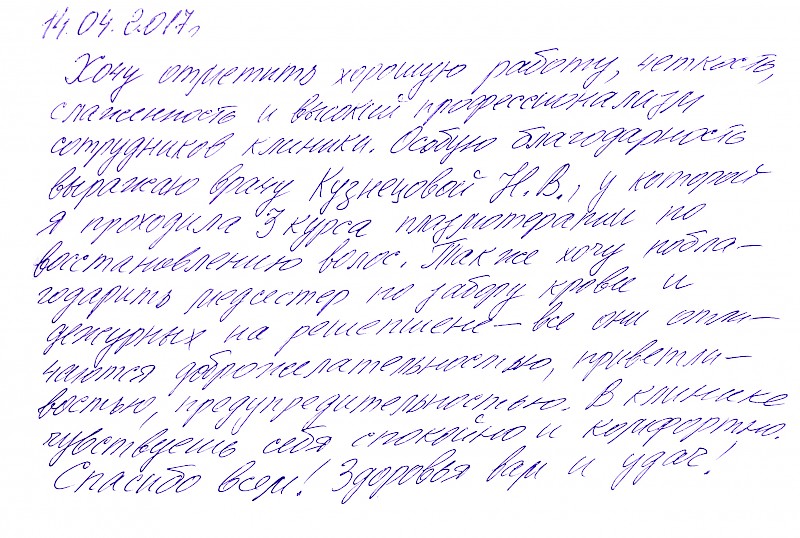 14.04.2017г
Хочу отметить хорошую работу, четкость,
слаженность и высокий профессионализм
сотрудников клиники. Особую благодарность
выражаю врачу Кузнецовой Н.В., у которой
я проходила 3 курса плазмотерапии по
восстановлению волос. Также хочу побла-
годарить медсестер по забору крови и
дежурных на решепшене - все они отли-
чаются доброжелательностью, приветли-
востью, предупредительностью. В клинике
чувствуешь себя спокойно и комфортно.
Спасибо всем! Здоровья вам и удач!